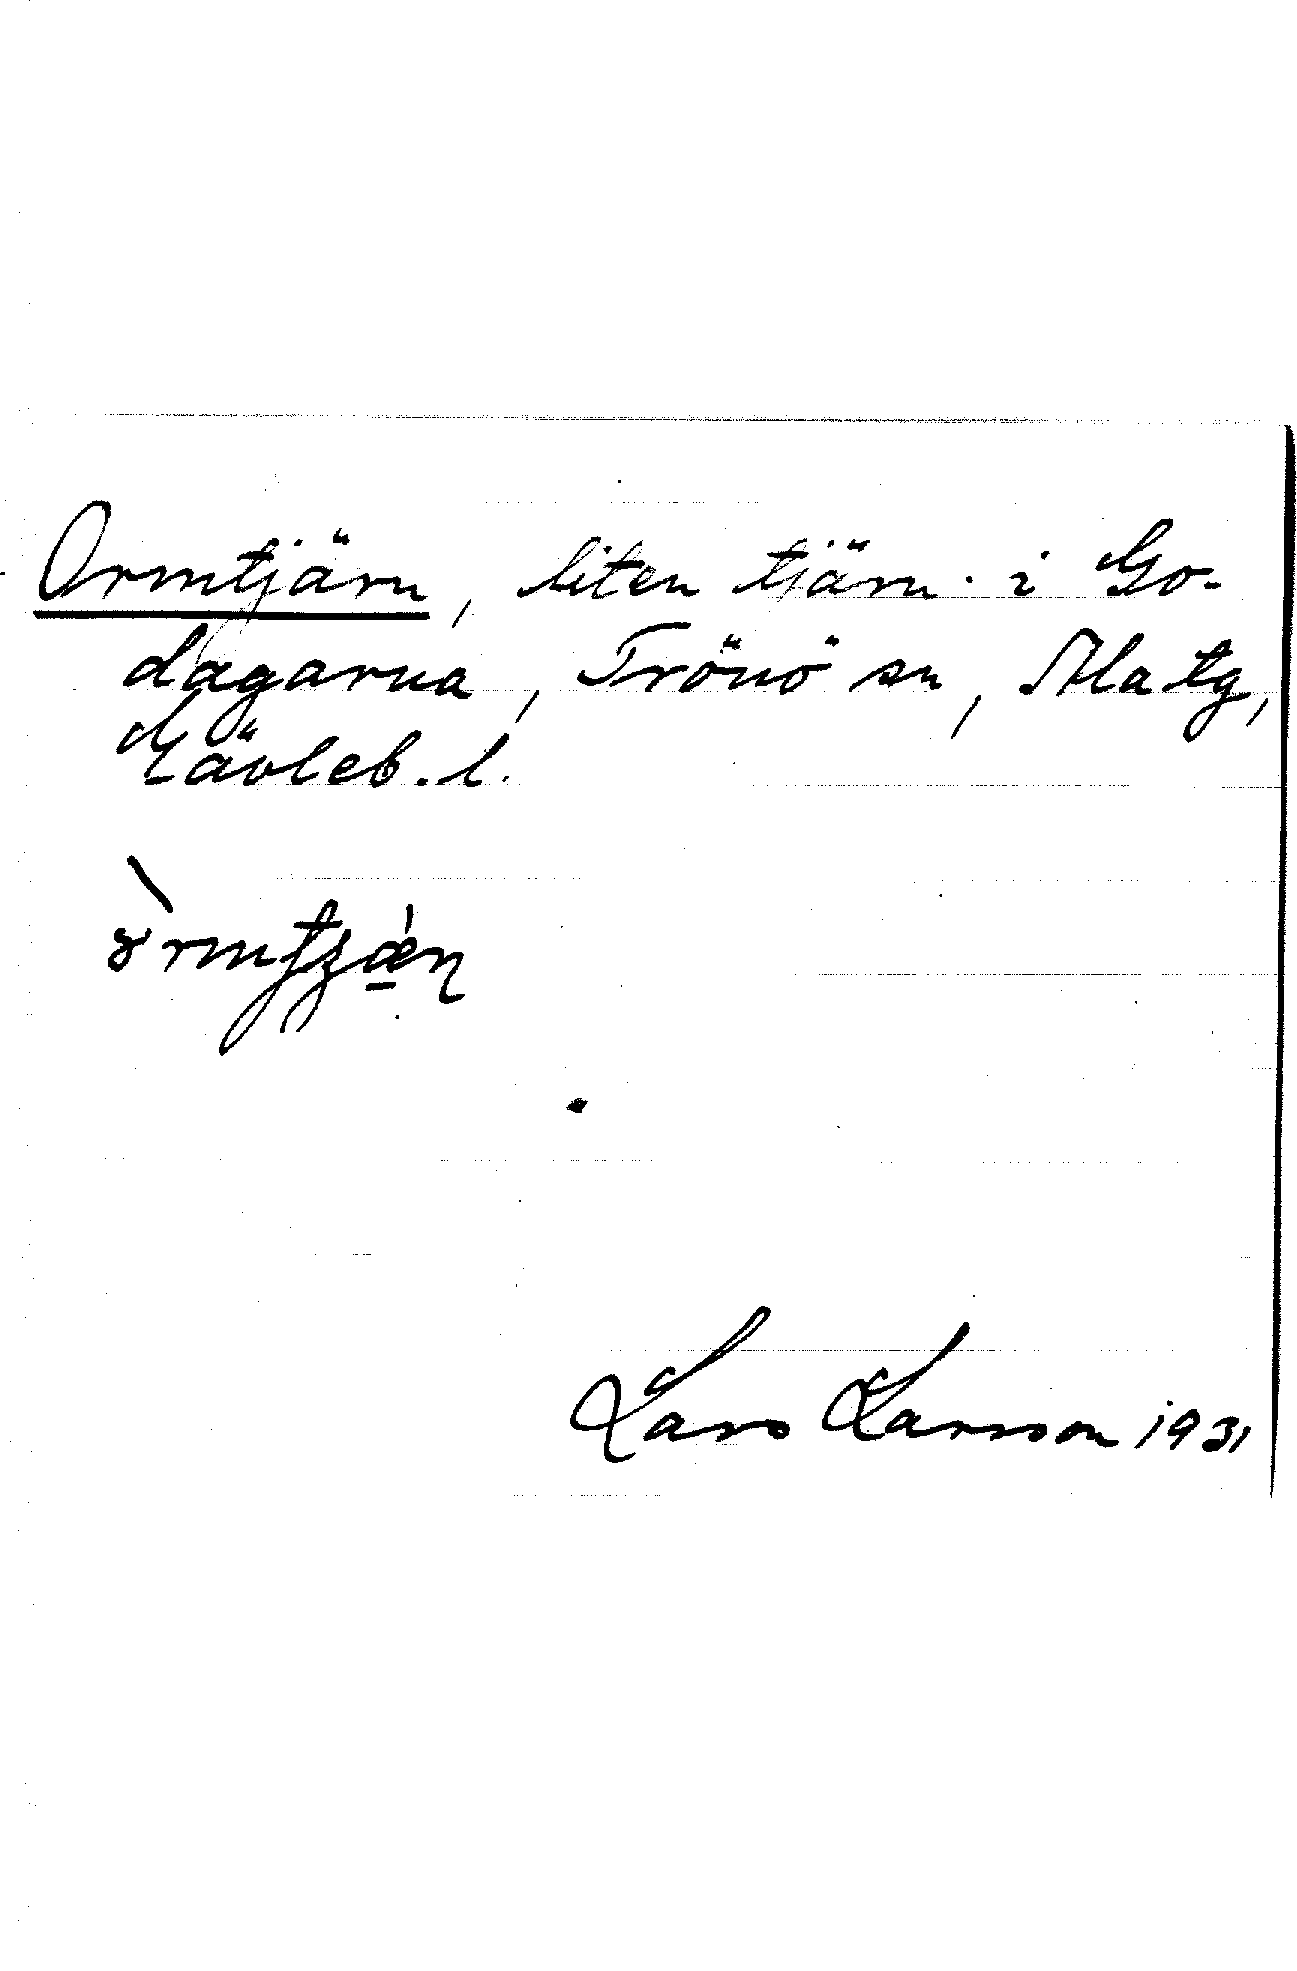 Ormtjärn, liten tjärn i Go-
dagarna, Trönö sn, Ala tg,
Gävleb. l.
Lars Larsson 1931